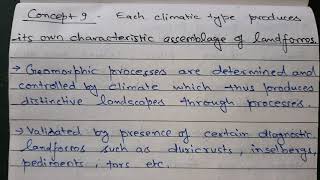 Concept 9 - Each climatic type produces
its own characteristic assemblage of landforms.
→ Geomorphic processes are determined and
controlled by climate which thus produces
distinctive landscapes through processes.
→ Validated by presence of certain diagnostic
landforms such as duricrusts, inselbergs,
pediments, tors etc.